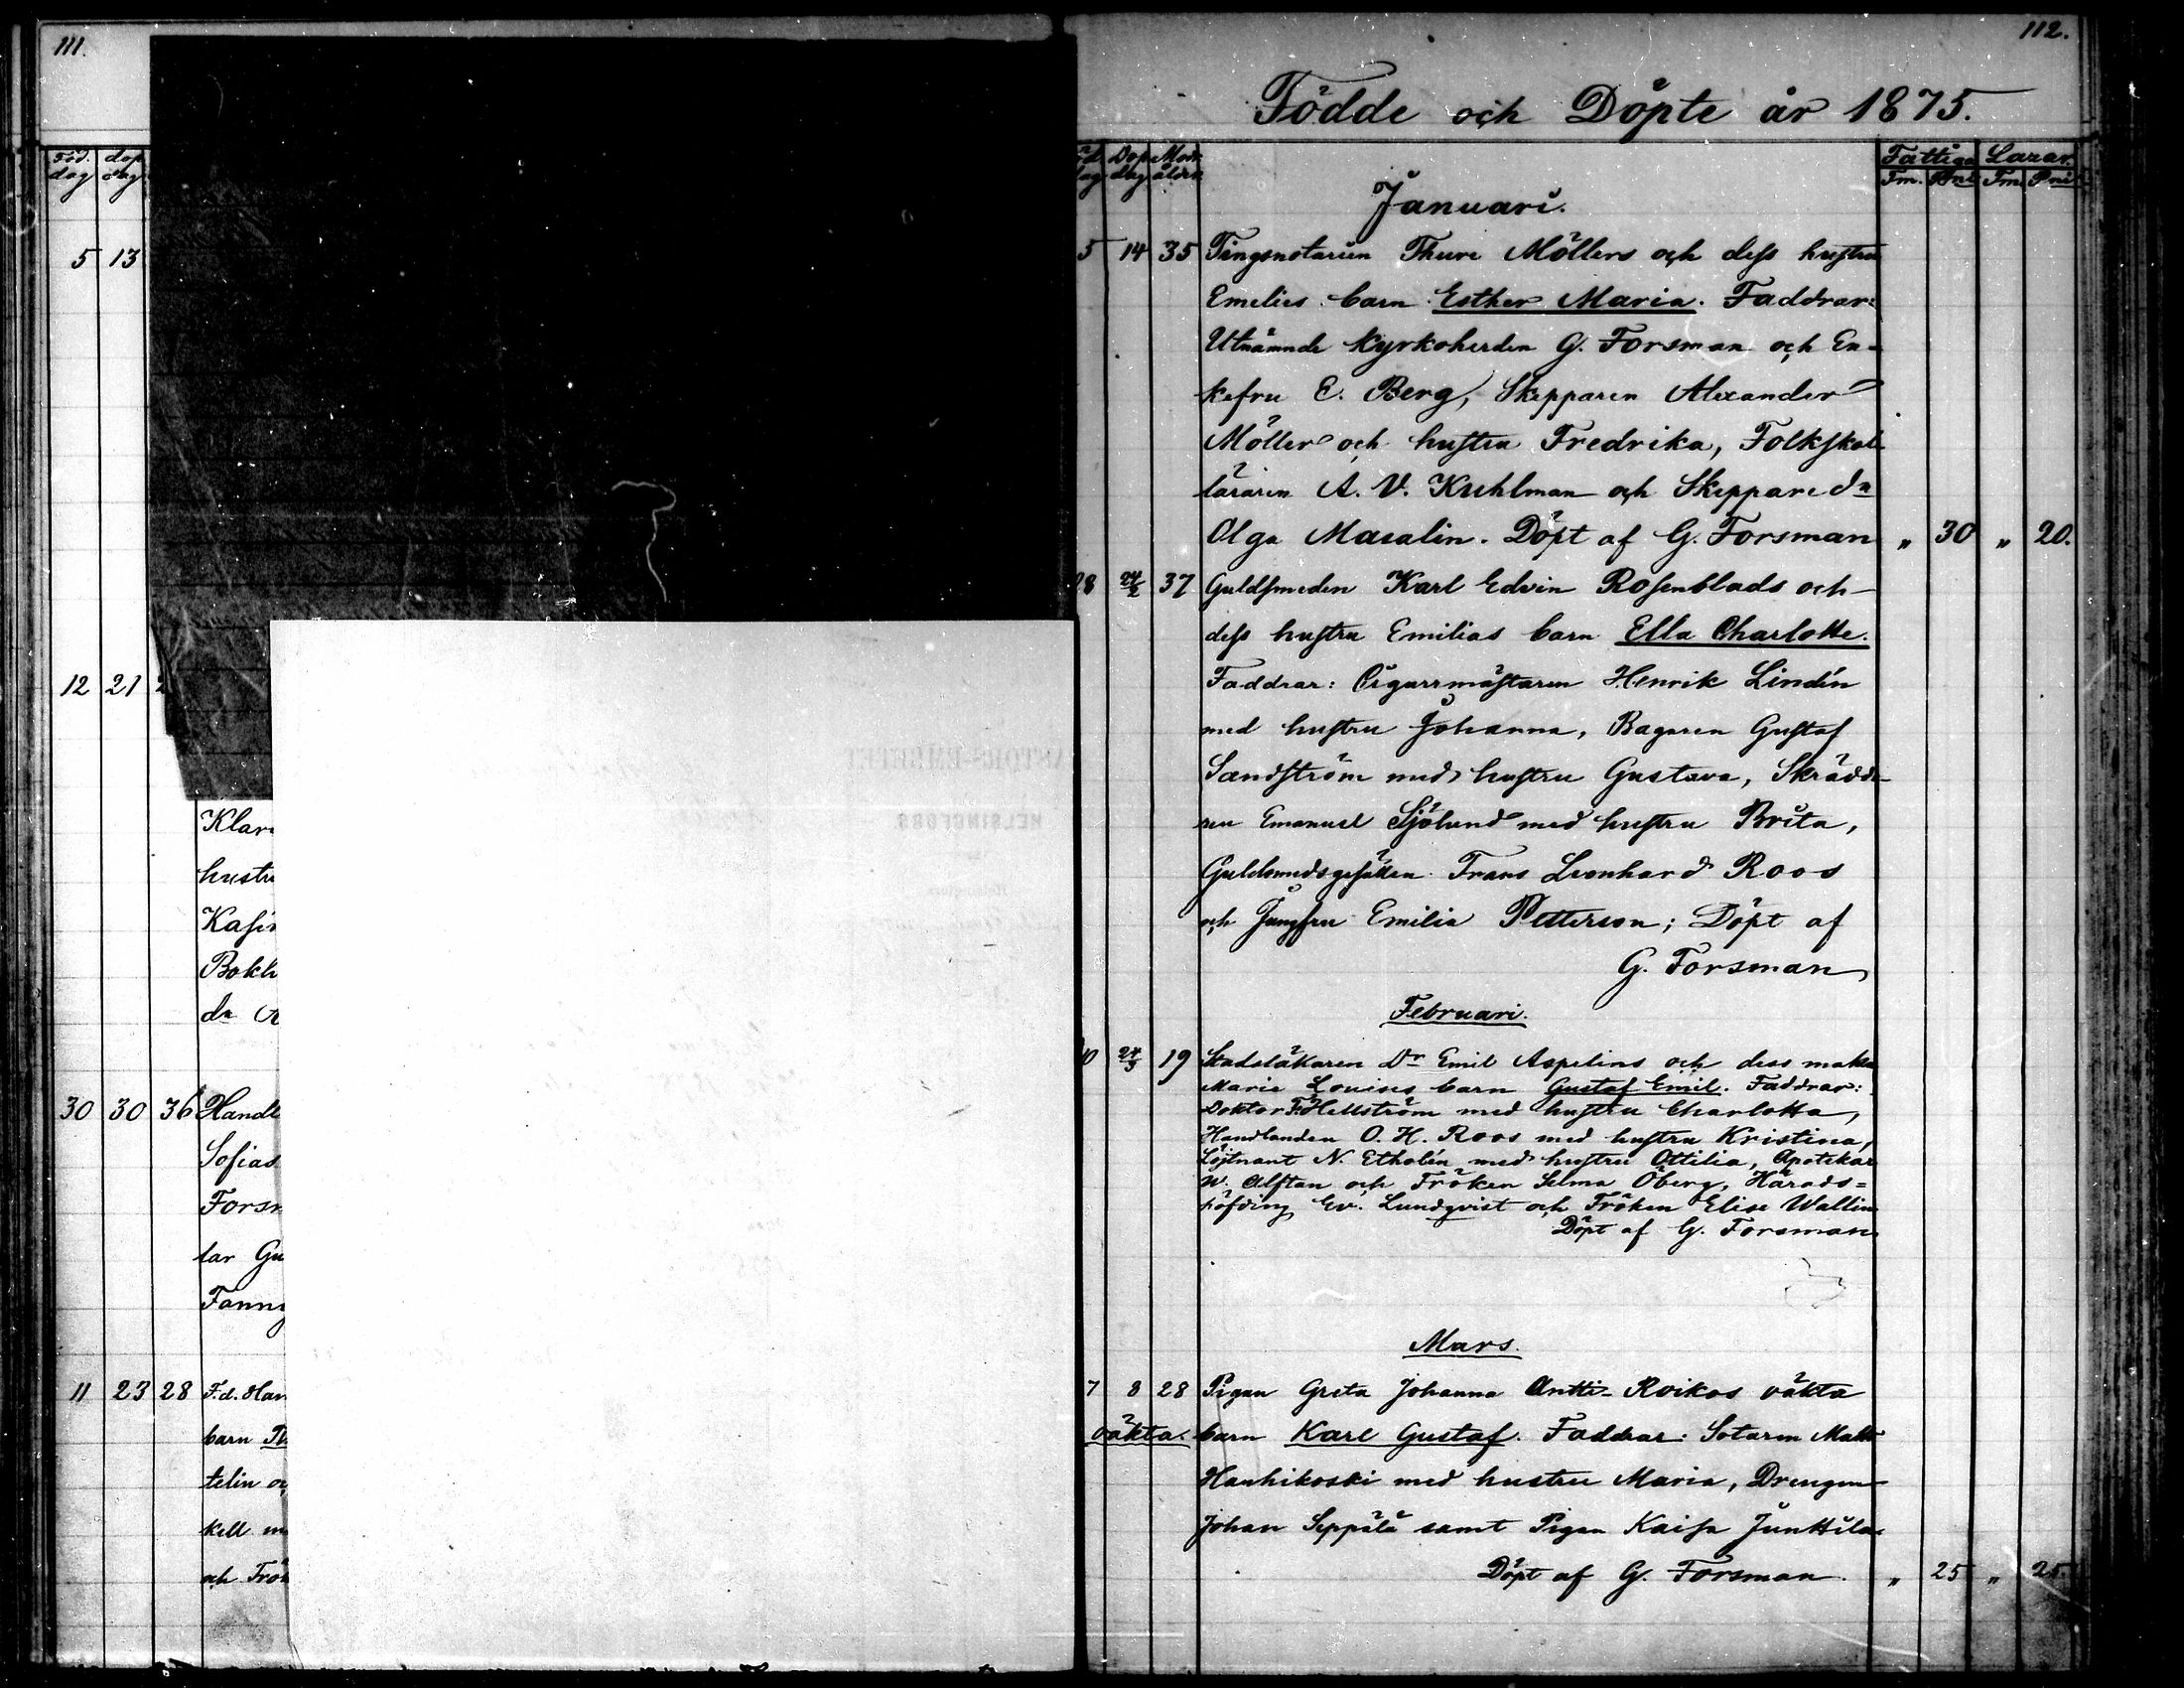 111.
Föd. dag dop dag
5 13
12 21
Klar
hustr
Kasi
Bokh
da
30 30 36 Handl
Sofias
Forsn
lar Gu
Fanny
11 23 28 F.d. Han
barn
telin oc
kell m
och Frök
HELSINGFORS
112.
Födde och Döpte år 1875.
Dop dag Modr ålder Fattiga Lazar.
Fm. Pni Fm. Pni
Januari.
5 14 35 Tingsnotarien Thure Möllers och dess hustru
Emelies barn Esther Maria. Faddrar:
Utnämnde Kyrkoherden G. Forsman och En-
kefru E. Berg, Skepparen Alexander
Möller och hustru Fredrika, Folkskol
läraren A. V. Kuhlman och Skeppare dn
Olga Masalin. Döpt af G. Forsman „ 30 „ 20.
28 24/2 37 Guldsmeden Karl Edvin Rosenblads och
dess hustru Emilias barn Ella Charlotte.
Faddrar: Cigarrmästaren Henrik Lindén
med hustru Johanna, Bagaren Gustaf
Sandström med hustru Gustava, Skrädda-
ren Emanuel Sjölund med hustru Brita,
Guldsmedsgesällen Frans Leonhard Roos
och Jungfru Emilia Petterson; Döpt af
G. Forsman
Februari.
24/3 19 Stadsläkaren Dr Emil Aspelins och dess maka
Marie Louises barn Gustaf Emil. Faddrar:
Doktor F. Hellström med hustru Charlotta,
Handlanden O. H. Roos med hustru Kristina,
Löjtnant N. Etholén med hustru Ottilia, Apotekar
W. Alftan och Fröken Selma Öberg, Härads=
höfding Ev. Lundqvist och Fröken Elise Wallin
Döpt af G. Forsman
Mars.
7 8 28 Pigan Greta Johanna Antti-Roikos oäkta
oäkta. barn Karl Gustaf. Faddrar: Sotaren Matts
Hanhikoski med hustru Maria, Drengen
Johan Seppälä samt Pigan Kaisa Junttila
Döpt af G. Forsman. „ 25 „ 25.